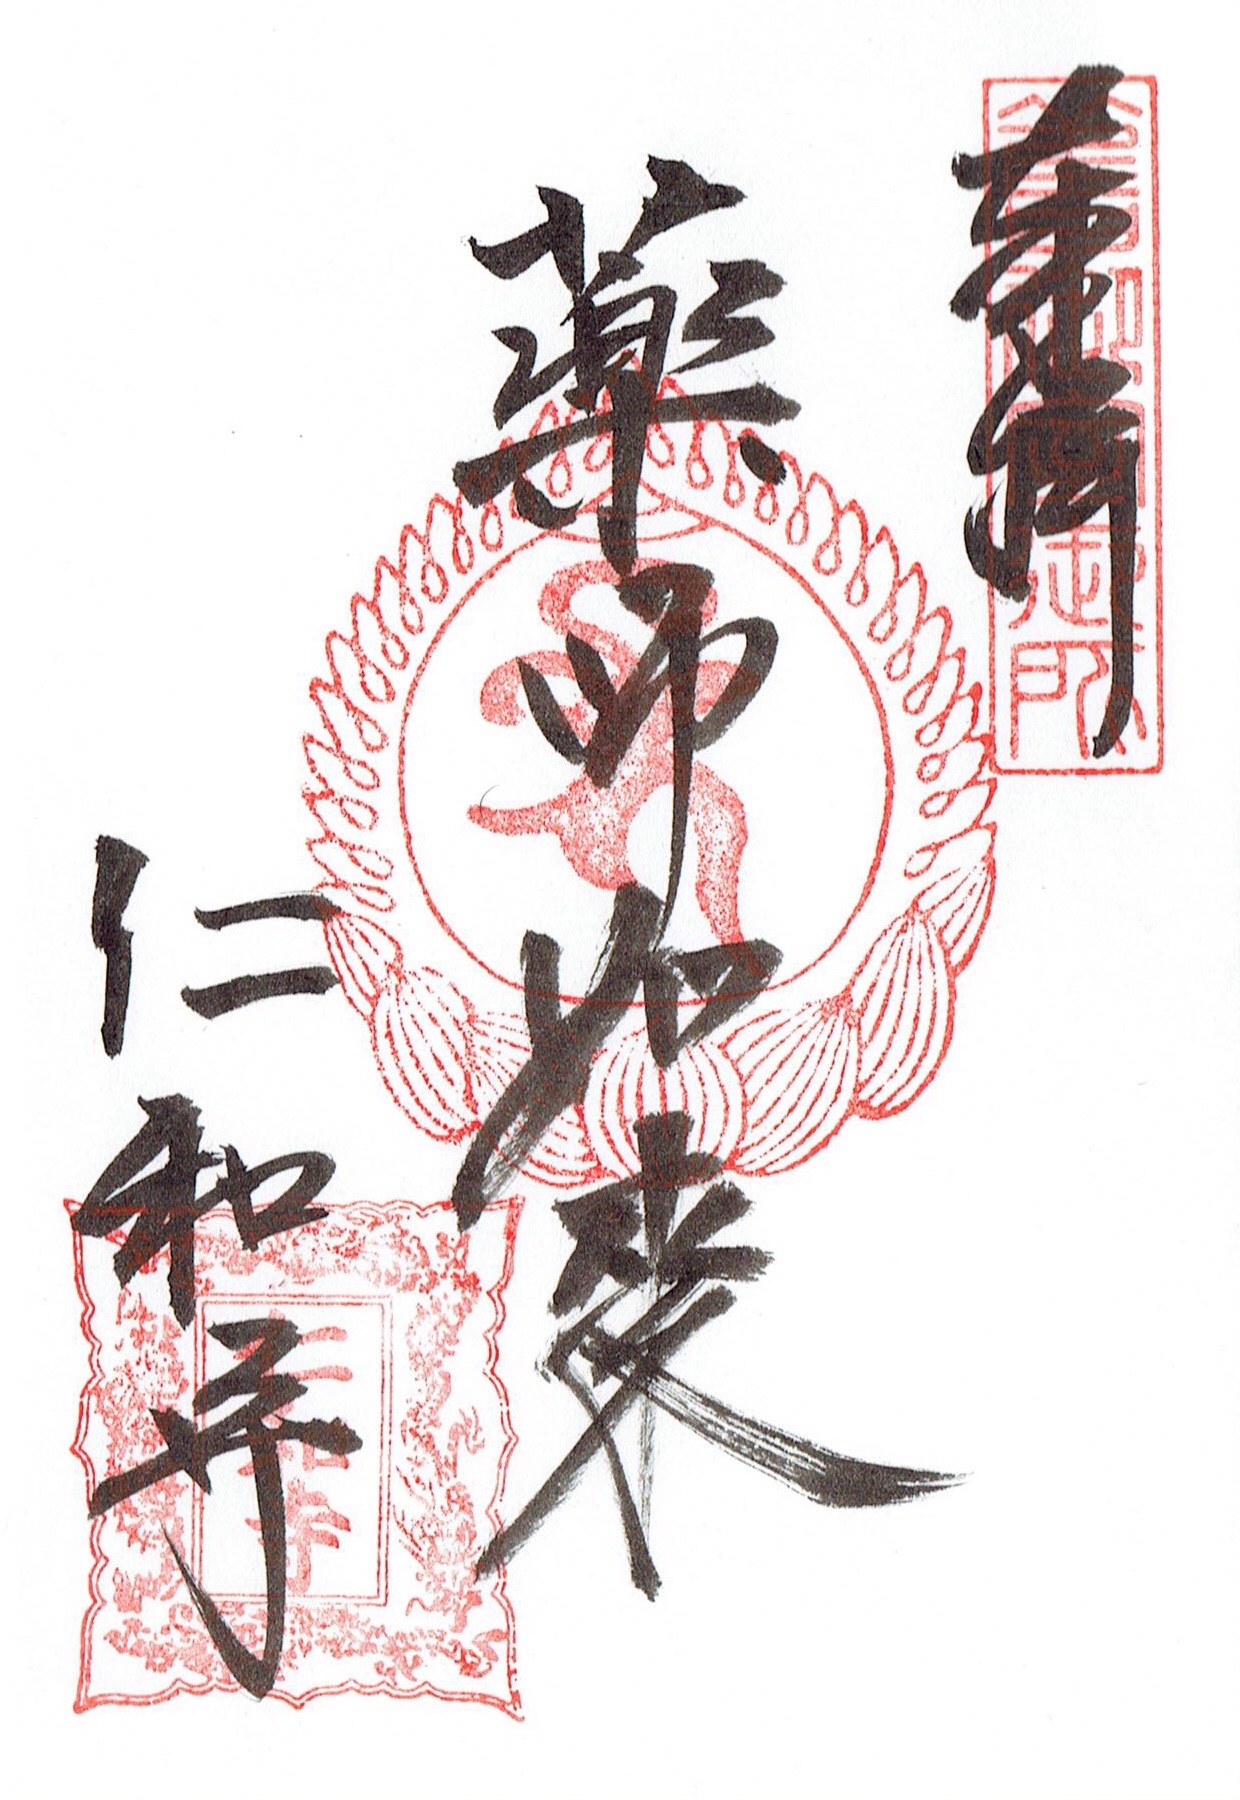 奉拝
薬師如来
仁和寺
仁和寺